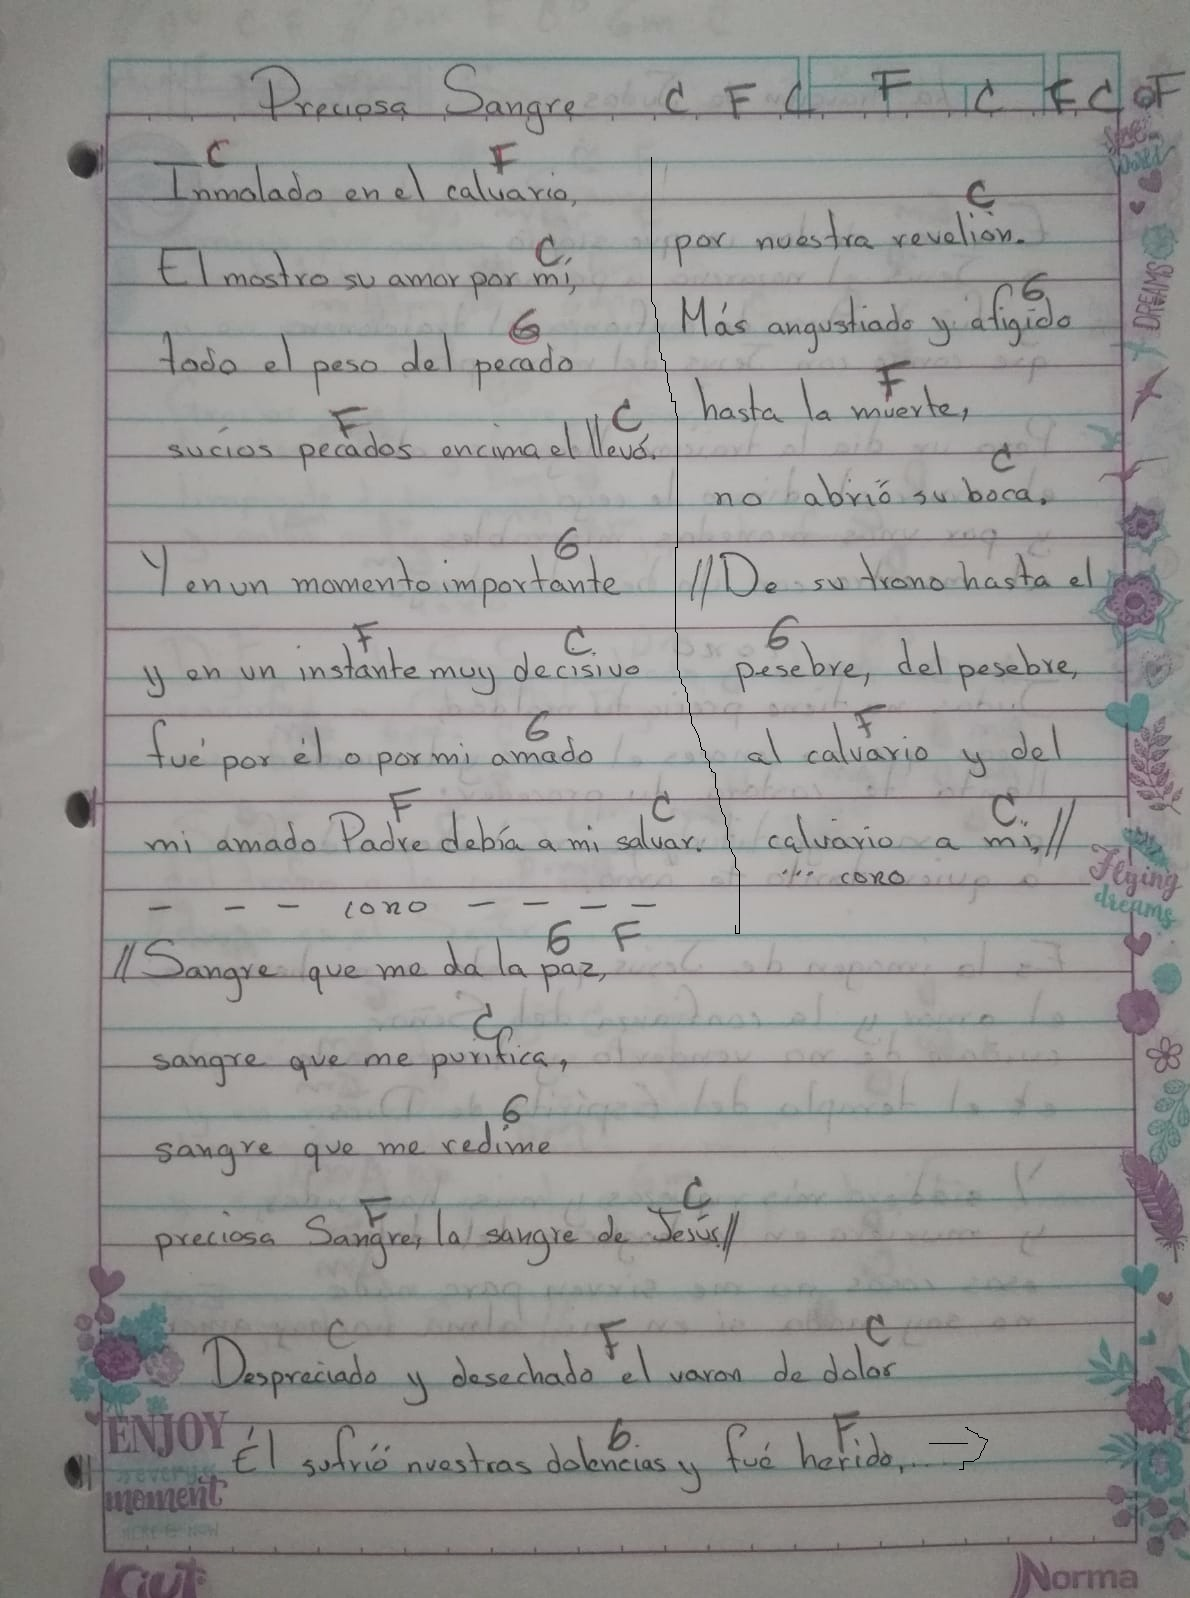 Preciosa Sangre C F C F C F C F
C F
Inmolado en el calvario,
C
El mostro su amor por mi,
G
todo el peso del pecado
F C
sucios pecados encima el llevó.
G
Y en un momento importante
F C
y en un instante muy decisivo
G
fué por él o por mi amado
F C
mi amado Padre debía a mi salvar.
- - - coro - - - -
G F
//Sangre que me da la paz,
C
sangre que me purifica,
G
sangre que me redime
F C
preciosa Sangre, la sangre de Jesús.//
C F C
Despreciado y desechado el varon de dolor
G F
Él sufrió nuestras dolencias y fué herido,...
C
por nuestra revelión.
G
Más angustiado y afigido
F
hasta la muerte,
C
no abrió su boca.
//De su trono hasta el
G
pesebre, del pesebre,
F
al calvario y del
C
calvario a mi,//
... coro
DREAMS
Flying
dreams
ENJOY
every
moment
HERE & NOW
Kiut
Norma